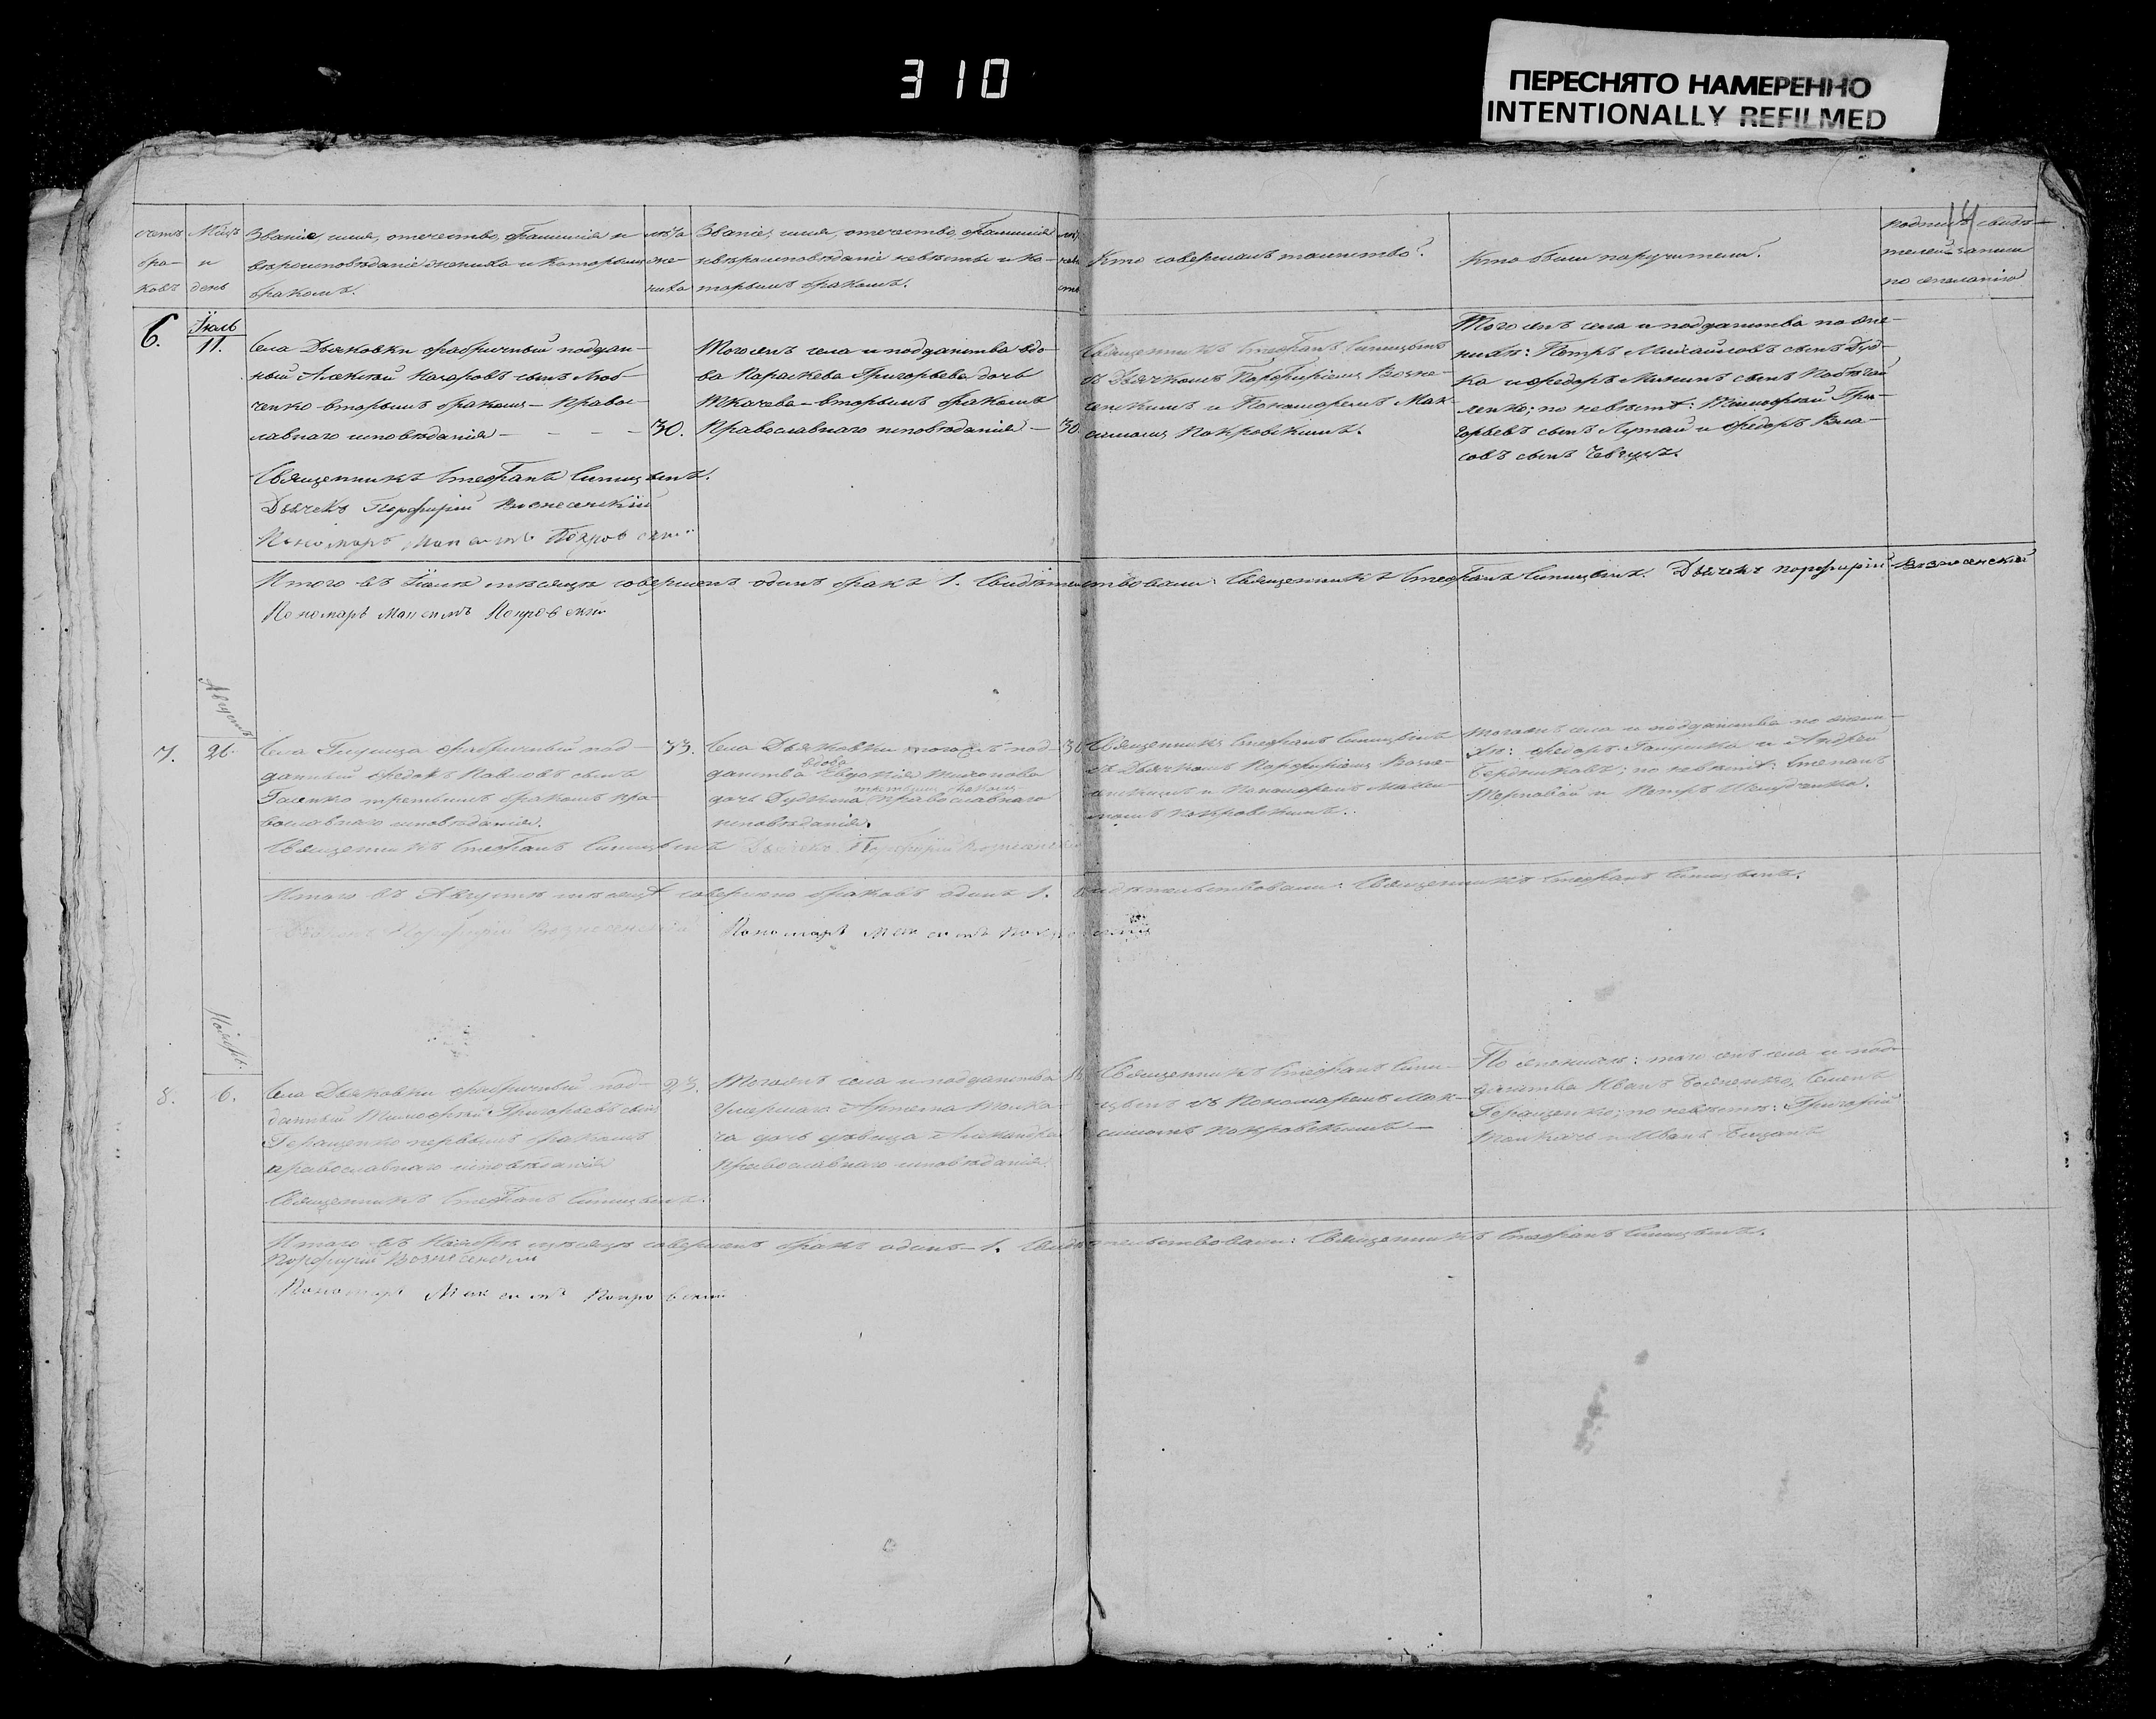 310
ПЕРЕСНЯТО НАМЕРЕННО
INTENTIONALLY REFILMED
14
счетъ
бра-
ковъ
Мѣсцъ
и
день
Званіе, имя, отечество, фамилія и
вѣроисповѣданіе жениха и которымъ
бракомъ.
лѣта
же-
ниха
Званіе, имя, отечество, фамилія
и вѣроисповѣданіе невѣсты и ко-
торымъ бракомъ.
Кто совершалъ таинство?
Кто были поручители.
подпись свидѣ-
телей записи
по желанію
6.
Іюль
11.
Села Дьяковки фабричный поддан-
ный Алексѣй Назаровъ сынъ Люб-
ченко вторымъ бракомъ – Правос-
лавнаго исповѣданія –
30.
Тогожъ села и подданства вдо-
ва Параскева Григорьева дочь
Ткачева – вторымъ бракомъ
Православнаго исповѣданія –
30.
Священникъ Стефанъ Синицынъ
съ Дьячкомъ Порфиріемъ Возне-
сенскимъ и Пономаремъ Мак-
симомъ Покровскимъ.
Тогожъ села и подданства по же-
нихѣ: Петръ Михайловъ сынъ Дуд-
ка и Федоръ сынъ
ленко; по невѣстѣ: Тимофей Гри-
горьевъ сынъ и Федоръ Вла-
совъ сынъ
Священникъ Стефанъ Синицынъ.
Дьячекъ Порфирій Вознесенскій
Пономарь Максимъ Покровскій
Итого въ Іюлѣ мѣсяцѣ совершенъ одинъ бракъ 1. Свидѣтельствовали: Священникъ Стефанъ Синицынъ. Дьячекъ Порфирій Вознесенскій
Пономарь Максимъ Покровскій
Августъ
7.
26.
Села Глушца фабричный под-
данный Федоръ Павловъ сынъ
Гаенко третьимъ бракомъ пра-
вославнаго исповѣданія.
33.
Села Дьяковки тогожъ под-
данства вдова Евдокія
дочь Дудкина третьимъ бракомъ православнаго
исповѣданія.
Священникъ Стефанъ Синицынъ
съ Дьячкомъ Порфиріемъ Возне-
сенскимъ и Пономаремъ Макси-
момъ Покровскимъ.
Тогожъ села и подданства по жени-
хѣ: Федоръ и Андрей
Бердниковъ; по невѣстѣ: Степанъ
Терновой и Петръ
Священникъ Стефанъ Синицынъ Дьячекъ Порфирій Вознесенскій
Итого въ Августѣ мѣсяцѣ совершено браковъ одинъ 1. Свидѣтельствовали: Священникъ Стефанъ Синицынъ.
Дьячекъ Порфирій Вознесенскій Пономарь Максимъ Покровскій
Ноябрь.
8.
6.
Села Дьяковки фабричный под-
данный Тимофей Григорьевъ сынъ
Геращенко первымъ бракомъ
православнаго исповѣданія
23.
Тогожъ села и подданства
умершаго Артема Толка-
ча дочь дѣвица Александра
православнаго исповѣданія.
Священникъ Стефанъ Сини-
цынъ съ Пономаремъ Мак-
симомъ Покровскимъ –
По женихѣ: того жъ села и под-
данства Иванъ Семенъ
Геращенко; по невѣстѣ: Григорій
Толкачъ и Иванъ
Священникъ Стефанъ Синицынъ.
Итого въ Ноябрѣ мѣсяцѣ совершенъ бракъ одинъ – 1. Свидѣтельствовали: Священникъ Стефанъ Синицынъ.
Порфирій Вознесенскій
Пономарь Максимъ Покровскій